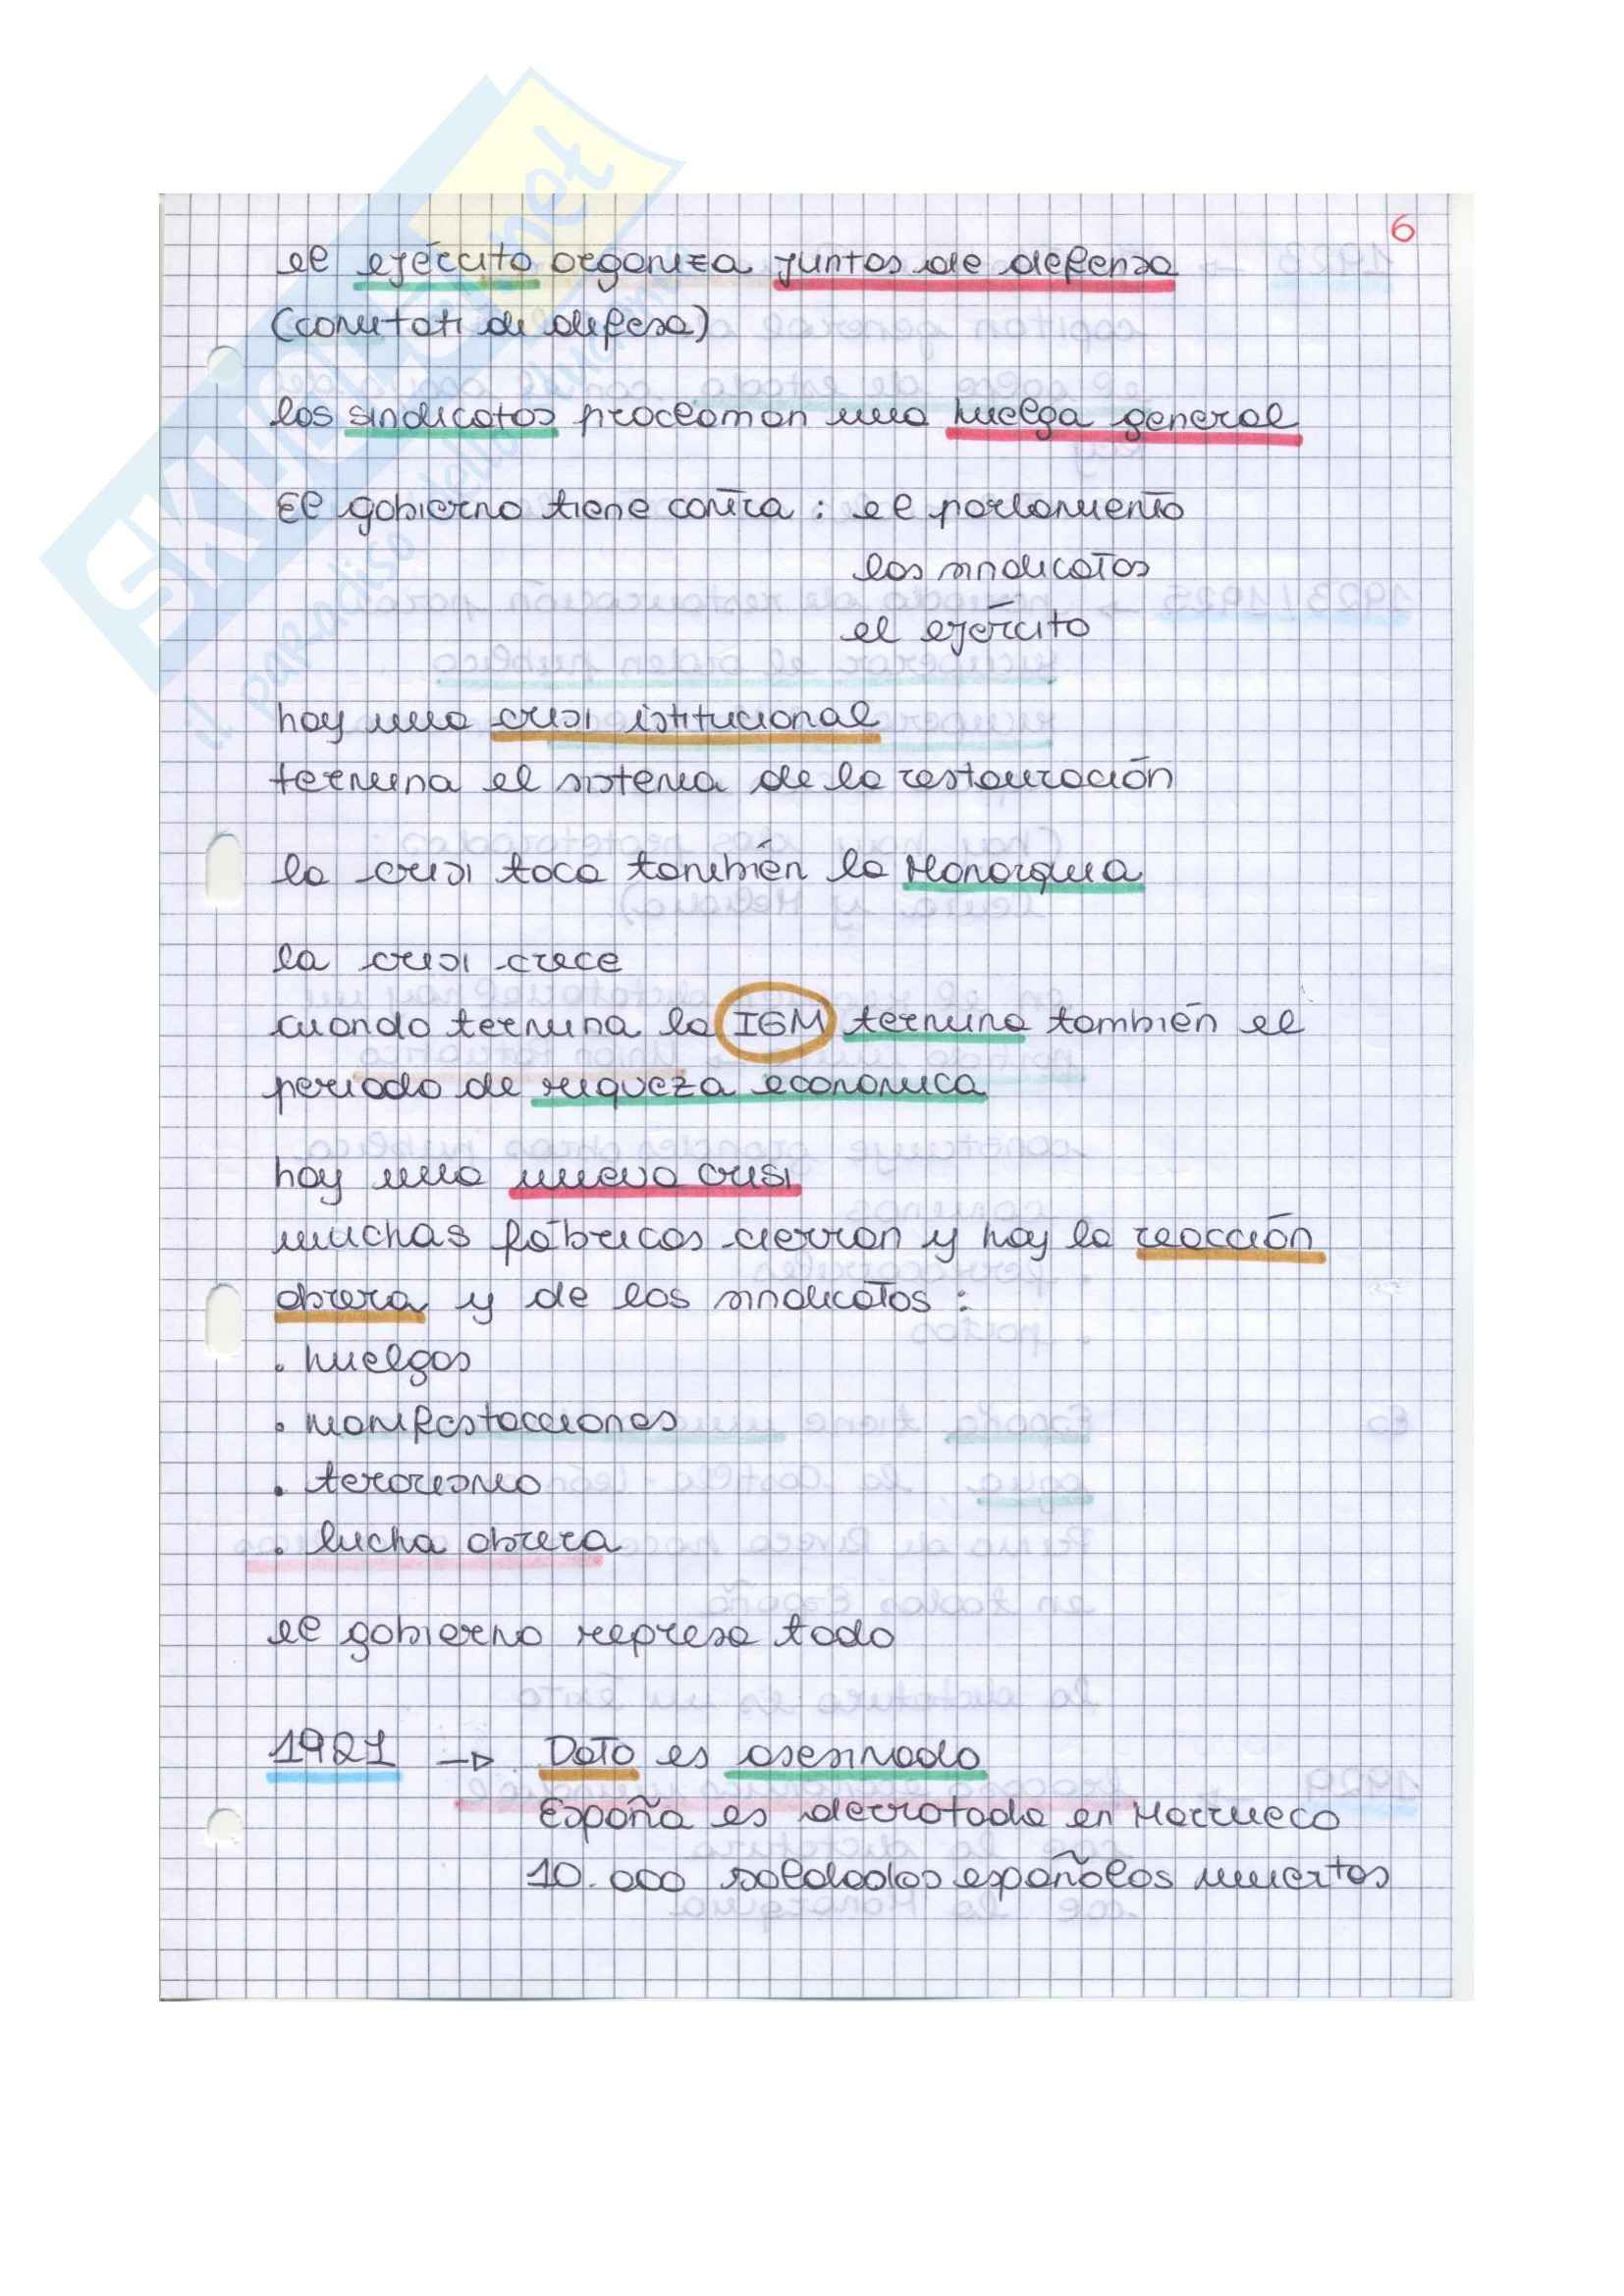 6
el ejército organiza juntas de defensa
(comitati di difesa)
los sindicatos proclaman una huelga general
El gobierno tiene contra : el parlamento
los sindicatos
el ejército
hay una crisi istitucional
termina el sistema de la restauración
la crisi toca también la Monarquia
la crisi crece
cuando termina la IGM termina también el
periodo de riqueza economica
hay una nueva crisi
muchas fábricas cierran y hay la reacción
obrera y de los sindicatos :
. huelgas
. manifestacciones
. terorismo
. lucha obrera
el gobierno represa todo
1921 → Dato es asesinado
España es derrotada en Marrueco
10.000 soldados españolos muertos
SKUOLA.net
il paradiso dello studente